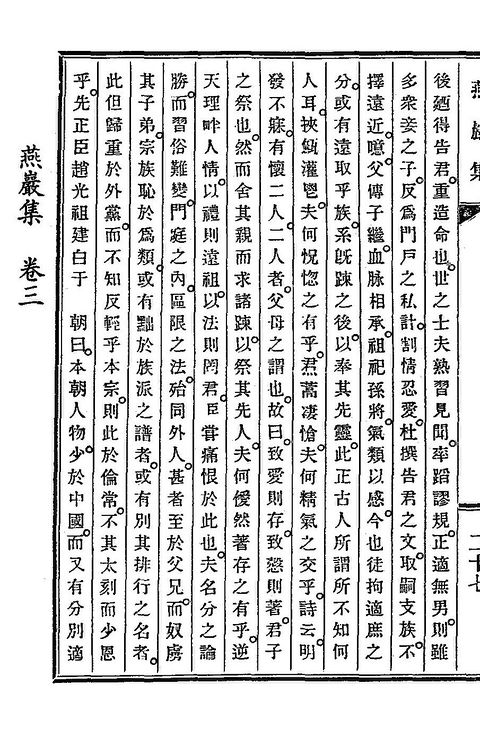 燕巖集
二十七
後廼得告君。重造命也。世之士夫熟習見聞。率蹈謬規。正適無男。則雖
多衆妾之子。反爲門戶之私計。割情忍愛。杜撰告君之文。取嗣支族。不
擇遠近。噫。父傳子繼。血脉相承。祖祀孫將。氣類以感。今也徒拘適庶之
分。或有遠取乎族系旣踈之後。以奉其先靈。此正古人所謂所不知何
人耳。裸瓉灌鬯。夫何怳惚之有乎。焄蒿凄愴。夫何精氣之交乎。詩云。明
發不寐。有懷二人。二人者。父母之謂也。故曰。致愛則存。致慤則著。君子
之祭也。然而舍其親而求諸踈。以祭其先人。夫何僾然著存之有乎。逆
天理咈人情。以禮則遠祖。以法則罔君。臣甞痛恨於此也。夫名分之論
勝。而習俗難變。門庭之內。區限之法。殆同外人。甚者至於父兄。而奴虜
其子弟。宗族恥於爲類。或有黜於族派之譜者。或有別其排行之名者。
此但歸重於外黨。而不知反輕乎本宗。則此於倫常。不其太刻而少恩
乎。先正臣趙光祖建白于　朝曰。本朝人物。少於中國。而又有分別適
燕巖集　卷三